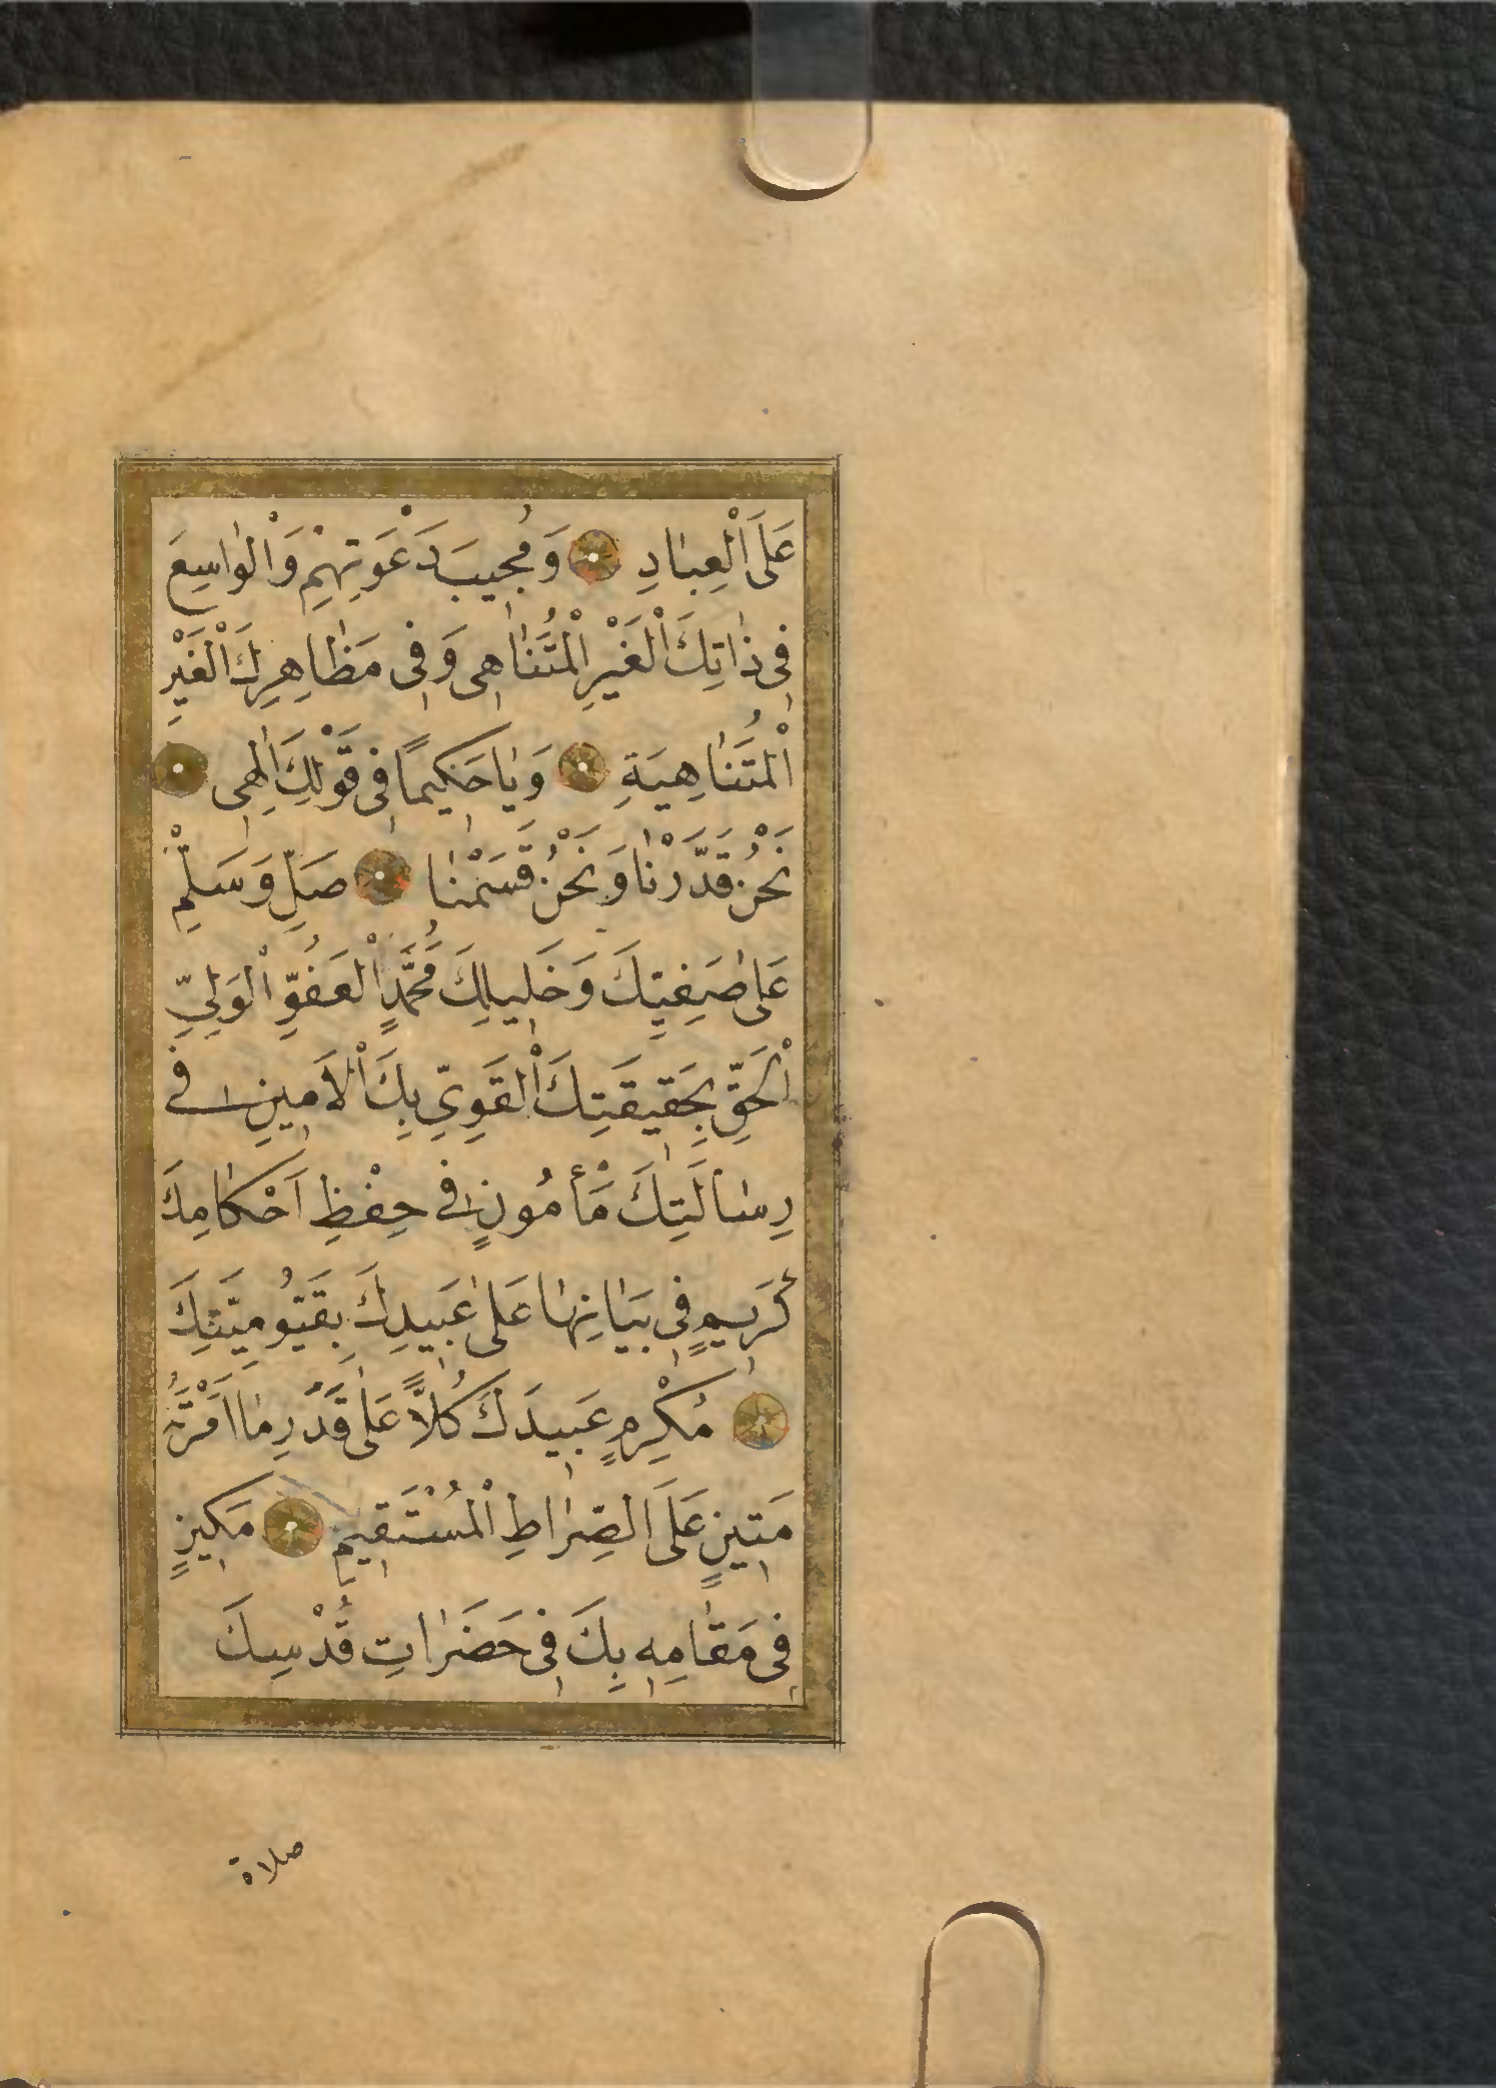 عَلَى الْعِبَادِ وَمُجِيبَ دَعْوَتِهِمْ وَالْوَاسِعَ
فِى ذَاتِكَ الْغَيْرِ الْمُتَنَاهِى وَفِى مَظَاهِرِكَ الْغَيْرِ
الْمُتَنَاهِيَةِ وَيَا حَكِيمًا فِى قَوْلِكَ اِلٰهِى
نَحْنُ قَدَّرْنَا وَنَحْنُ قَسَمْنَا صَلِّ وَسَلِّمْ
عَلٰى صَفِيِّكَ وَخَلِيلِكَ مُحَمَّدٍ الْعَفُوِّ الْوَلِيِّ
الْحَقِّ بِحَقِيقَتِكَ الْقَوِيِّ بِكَ الْاَمِينِ فِى
رِسَالَتِكَ مَأْمُونٍ فِى حِفْظِ اَحْكَامِكَ
كَرِيمٍ فِى بَيَانِهَا عَلٰى عَبِيدِكَ بِقَيُّومِيَّتِكَ
مُكْرِمٍ عَبِيدَكَ كُلًّا عَلٰى قَدْرِ مَا اَمَرْتَهُ
مَتِينٍ عَلَى الصِّرَاطِ الْمُسْتَقِيمِ مَكِينٍ
فِى مَقَامِهِ بِكَ فِى حَضَرَاتِ قُدْسِكَ
صلاة